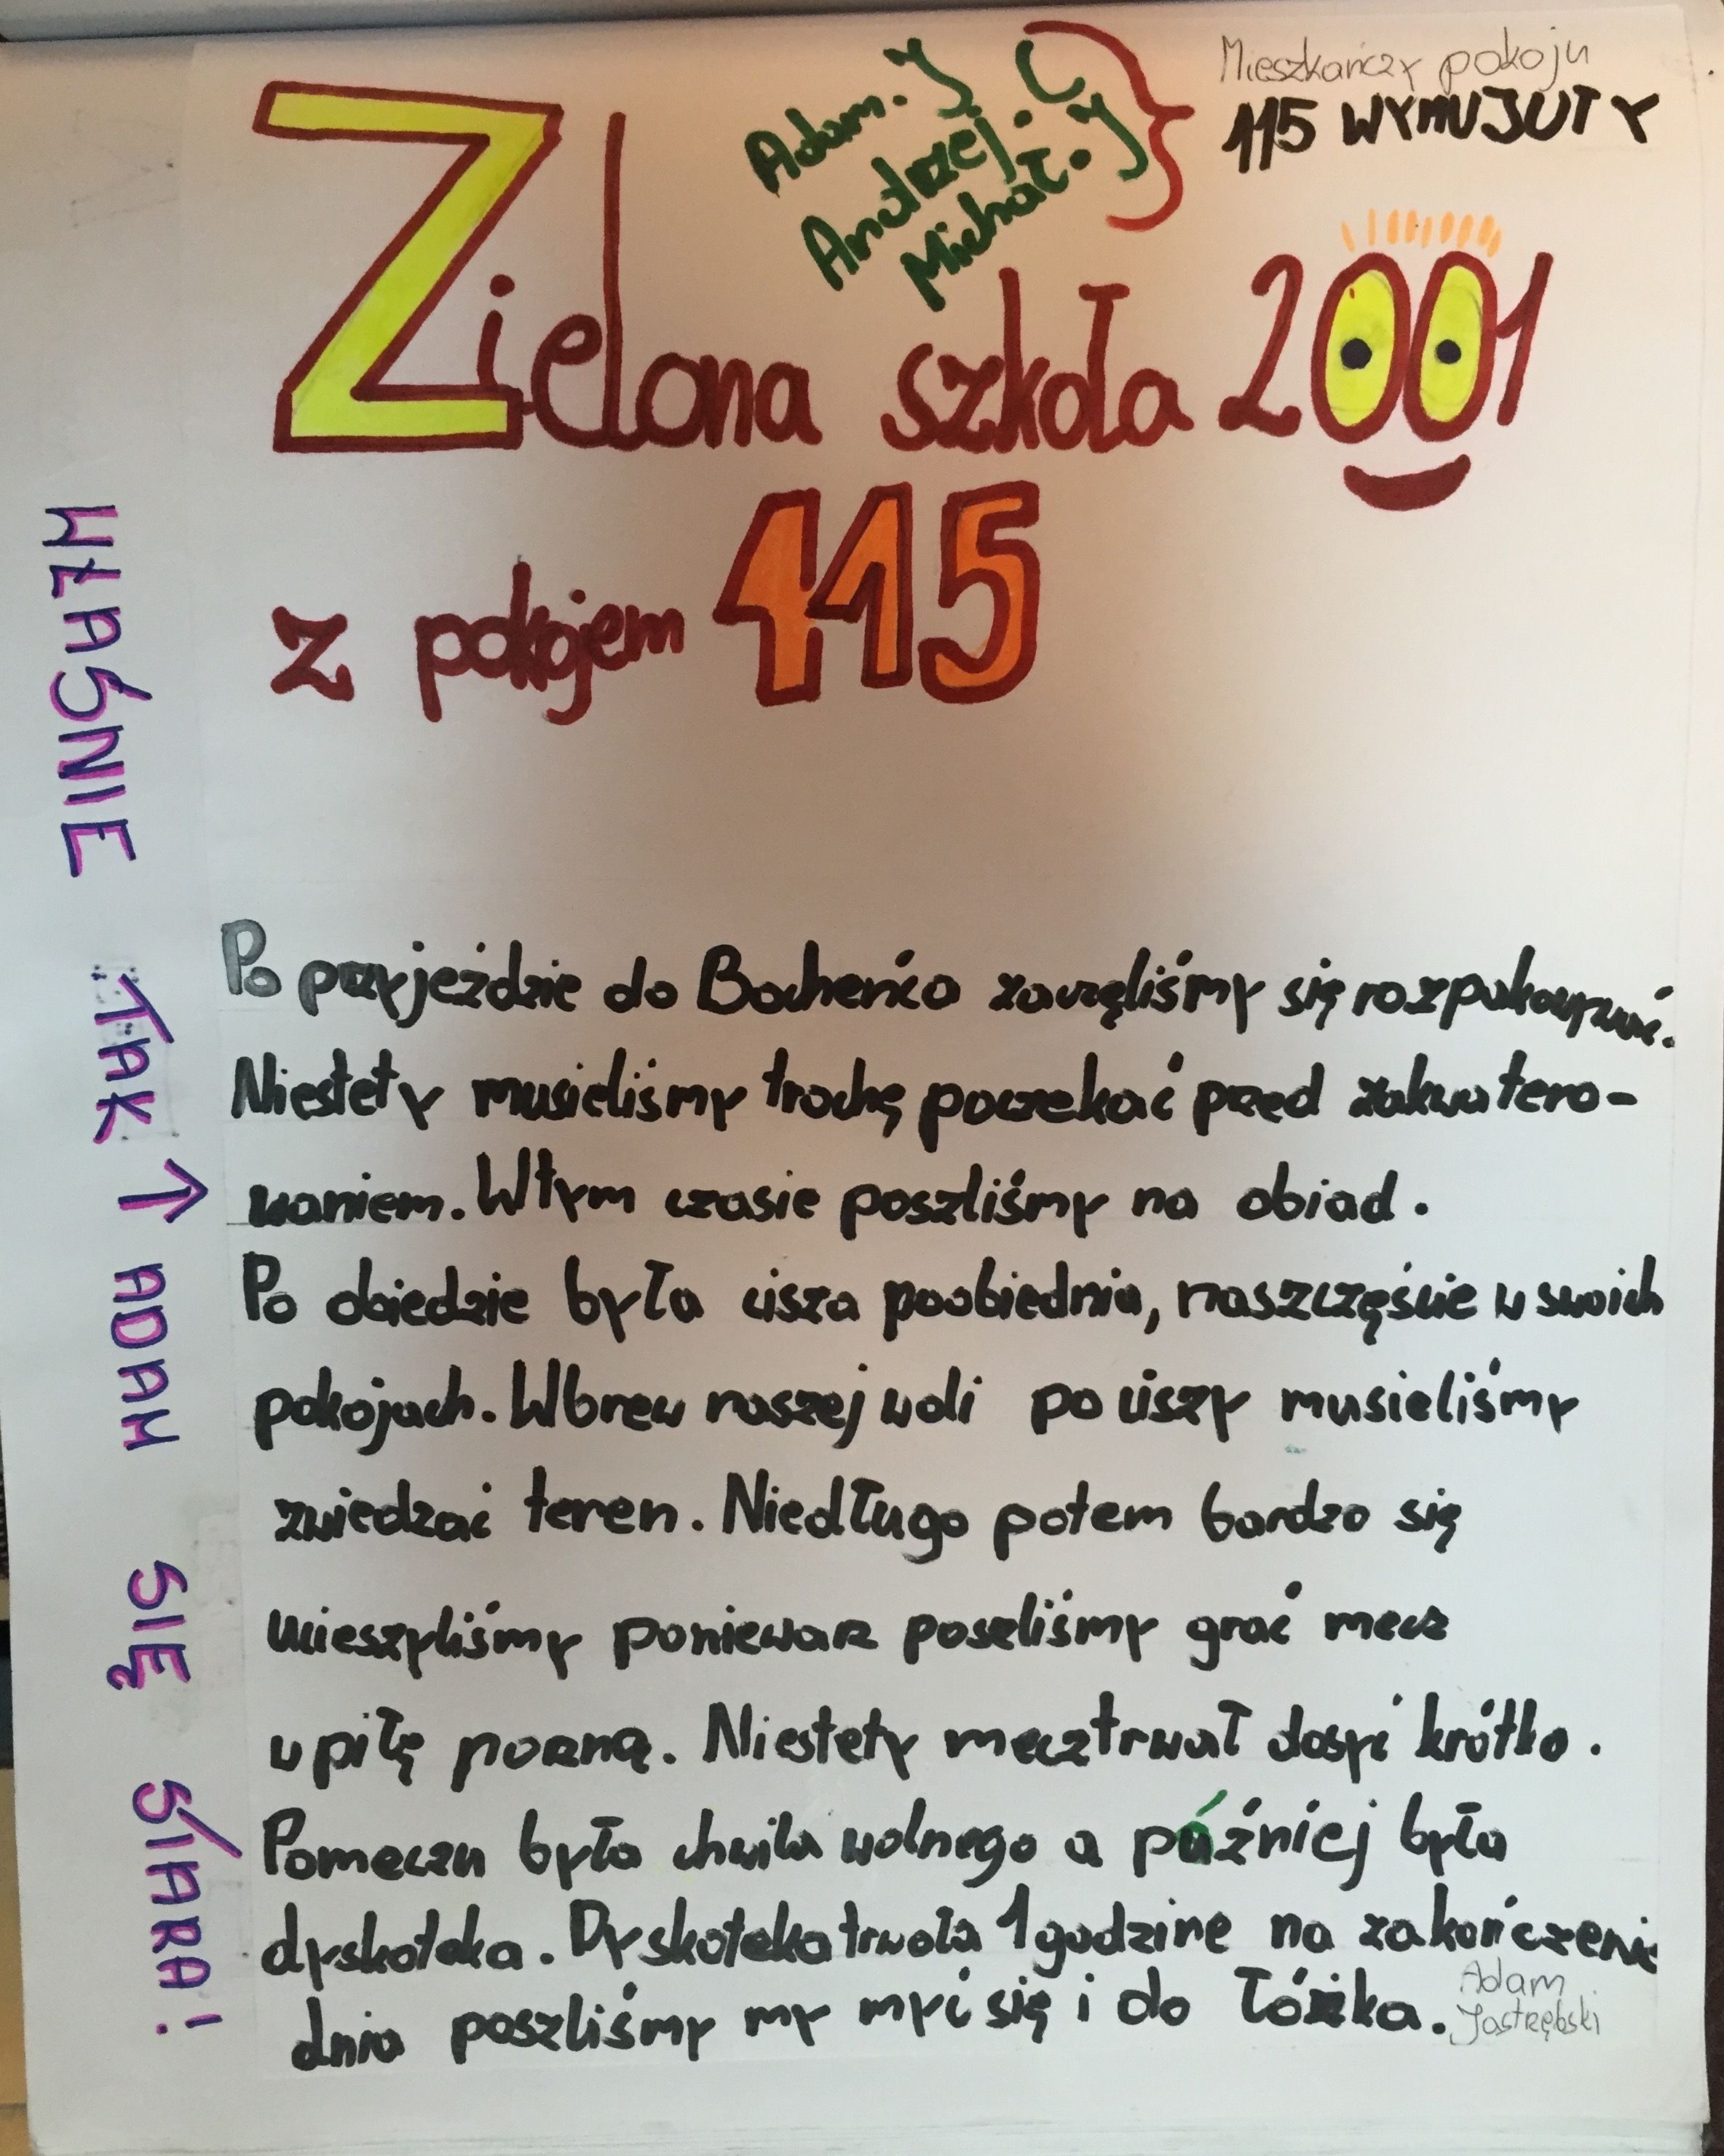 Adam. J
Andrzej. C
Michał. J
Mieszkańczy pokoju
115 WYMUJUTY
Zielona szkoła 2001
z pokojem 115
Po przyjeździe do Bocheńca zaczęliśmy się rozpakowywać.
Niestety musieliśmy trochę poczekać przed zakwatero-
waniem. Wtym czasie poszliśmy na obiad.
Po obiedzie była cisza poobiednia, naszczęście w swoich
pokojach. Wbrew naszej woli po ciszy musieliśmy
zwiedzać teren. Niedługo potem bardzo się
ucieszyliśmy poniewarz poszliśmy grać mecz
w piłę norzną. Niestety mecz trwał dosyć krótko.
Pomeczu była chwila wolnego a puźniej była
dyskoteka. Dyskoteka trwała 1 godzine na zakończenie
dnia poszliśmy my myć się i do łóżka.
Adam
Jastrębski
WŁAŚNIE TAK ↑ ADAM SIĘ SIARA!